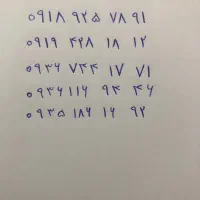 ۰۹۱۸ ۹۲۵ ۷۸ ۹۱
۰۹۱۹ ۴۲۸ ۱۸ ۱۲
۰۹۳۶ ۷۴۴ ۱۷ ۷۱
۰۹۳۶ ۱۱۶ ۹۴ ۴۶
۰۹۳۵ ۱۸۶ ۱۶ ۹۲